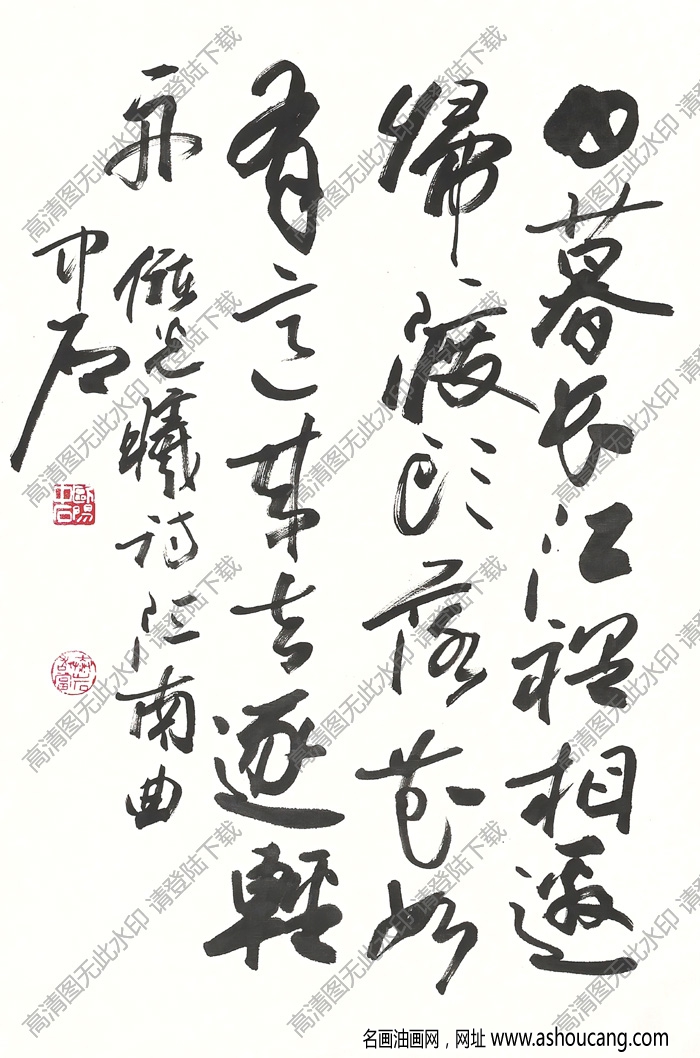 日暮长江裡相邀
歸渡头落花如
有意来去逐輕
舟 儲光曦诗江南曲
中石
歐陽中石
高清图无此水印 请登陆下载
名画油画网，网址 www.ashoucang.com